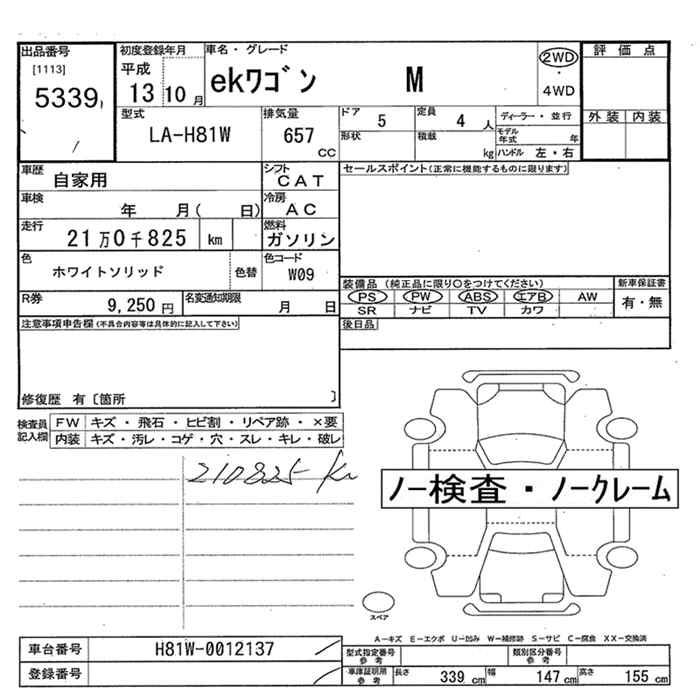 出品番号
[1113]
5339
初度登録年月
平成
13 10 月
車名・グレード
ekワゴン M
2WD
・
4WD
評価点
外装 内装
型式
LA-H81W
排気量
657
CC
ドア 5
定員 4 人
形状
積載 kg
ディーラー・並行
モデル年式 年
ハンドル 左・右
車歴
自家用
シフト
CAT
車検
年 月( 日)
冷房
AC
走行
21万0千825 km
燃料
ガソリン
色
ホワイトソリッド
色替
色コード
W09
R券
9,250 円
名変通知期限
月 日
セールスポイント(正常に機能するものに限ります)
装備品(純正品に限り○をつけてください)
PS PW ABS エアB AW
SR ナビ TV カワ
新車保証書
有・無
後日品
注意事項申告欄(不具合内容等は具体的に記入して下さい)
修復歴 有〔箇所 〕
検査員
記入欄
FW キズ・飛石・ヒビ割・リペア跡・×要
内装 キズ・汚レ・コゲ・穴・スレ・キレ・破レ
210825 Km
ノー検査・ノークレーム
スペア
A-キズ E-エクボ U-凹み W-補修跡 S-サビ C-腐食 XX-交換済
車台番号 H81W-0012137
登録番号
型式指定番号
参考
類別区分番号
参考
車庫証明用
参考
長さ 339 cm 幅 147 cm 高さ 155 cm